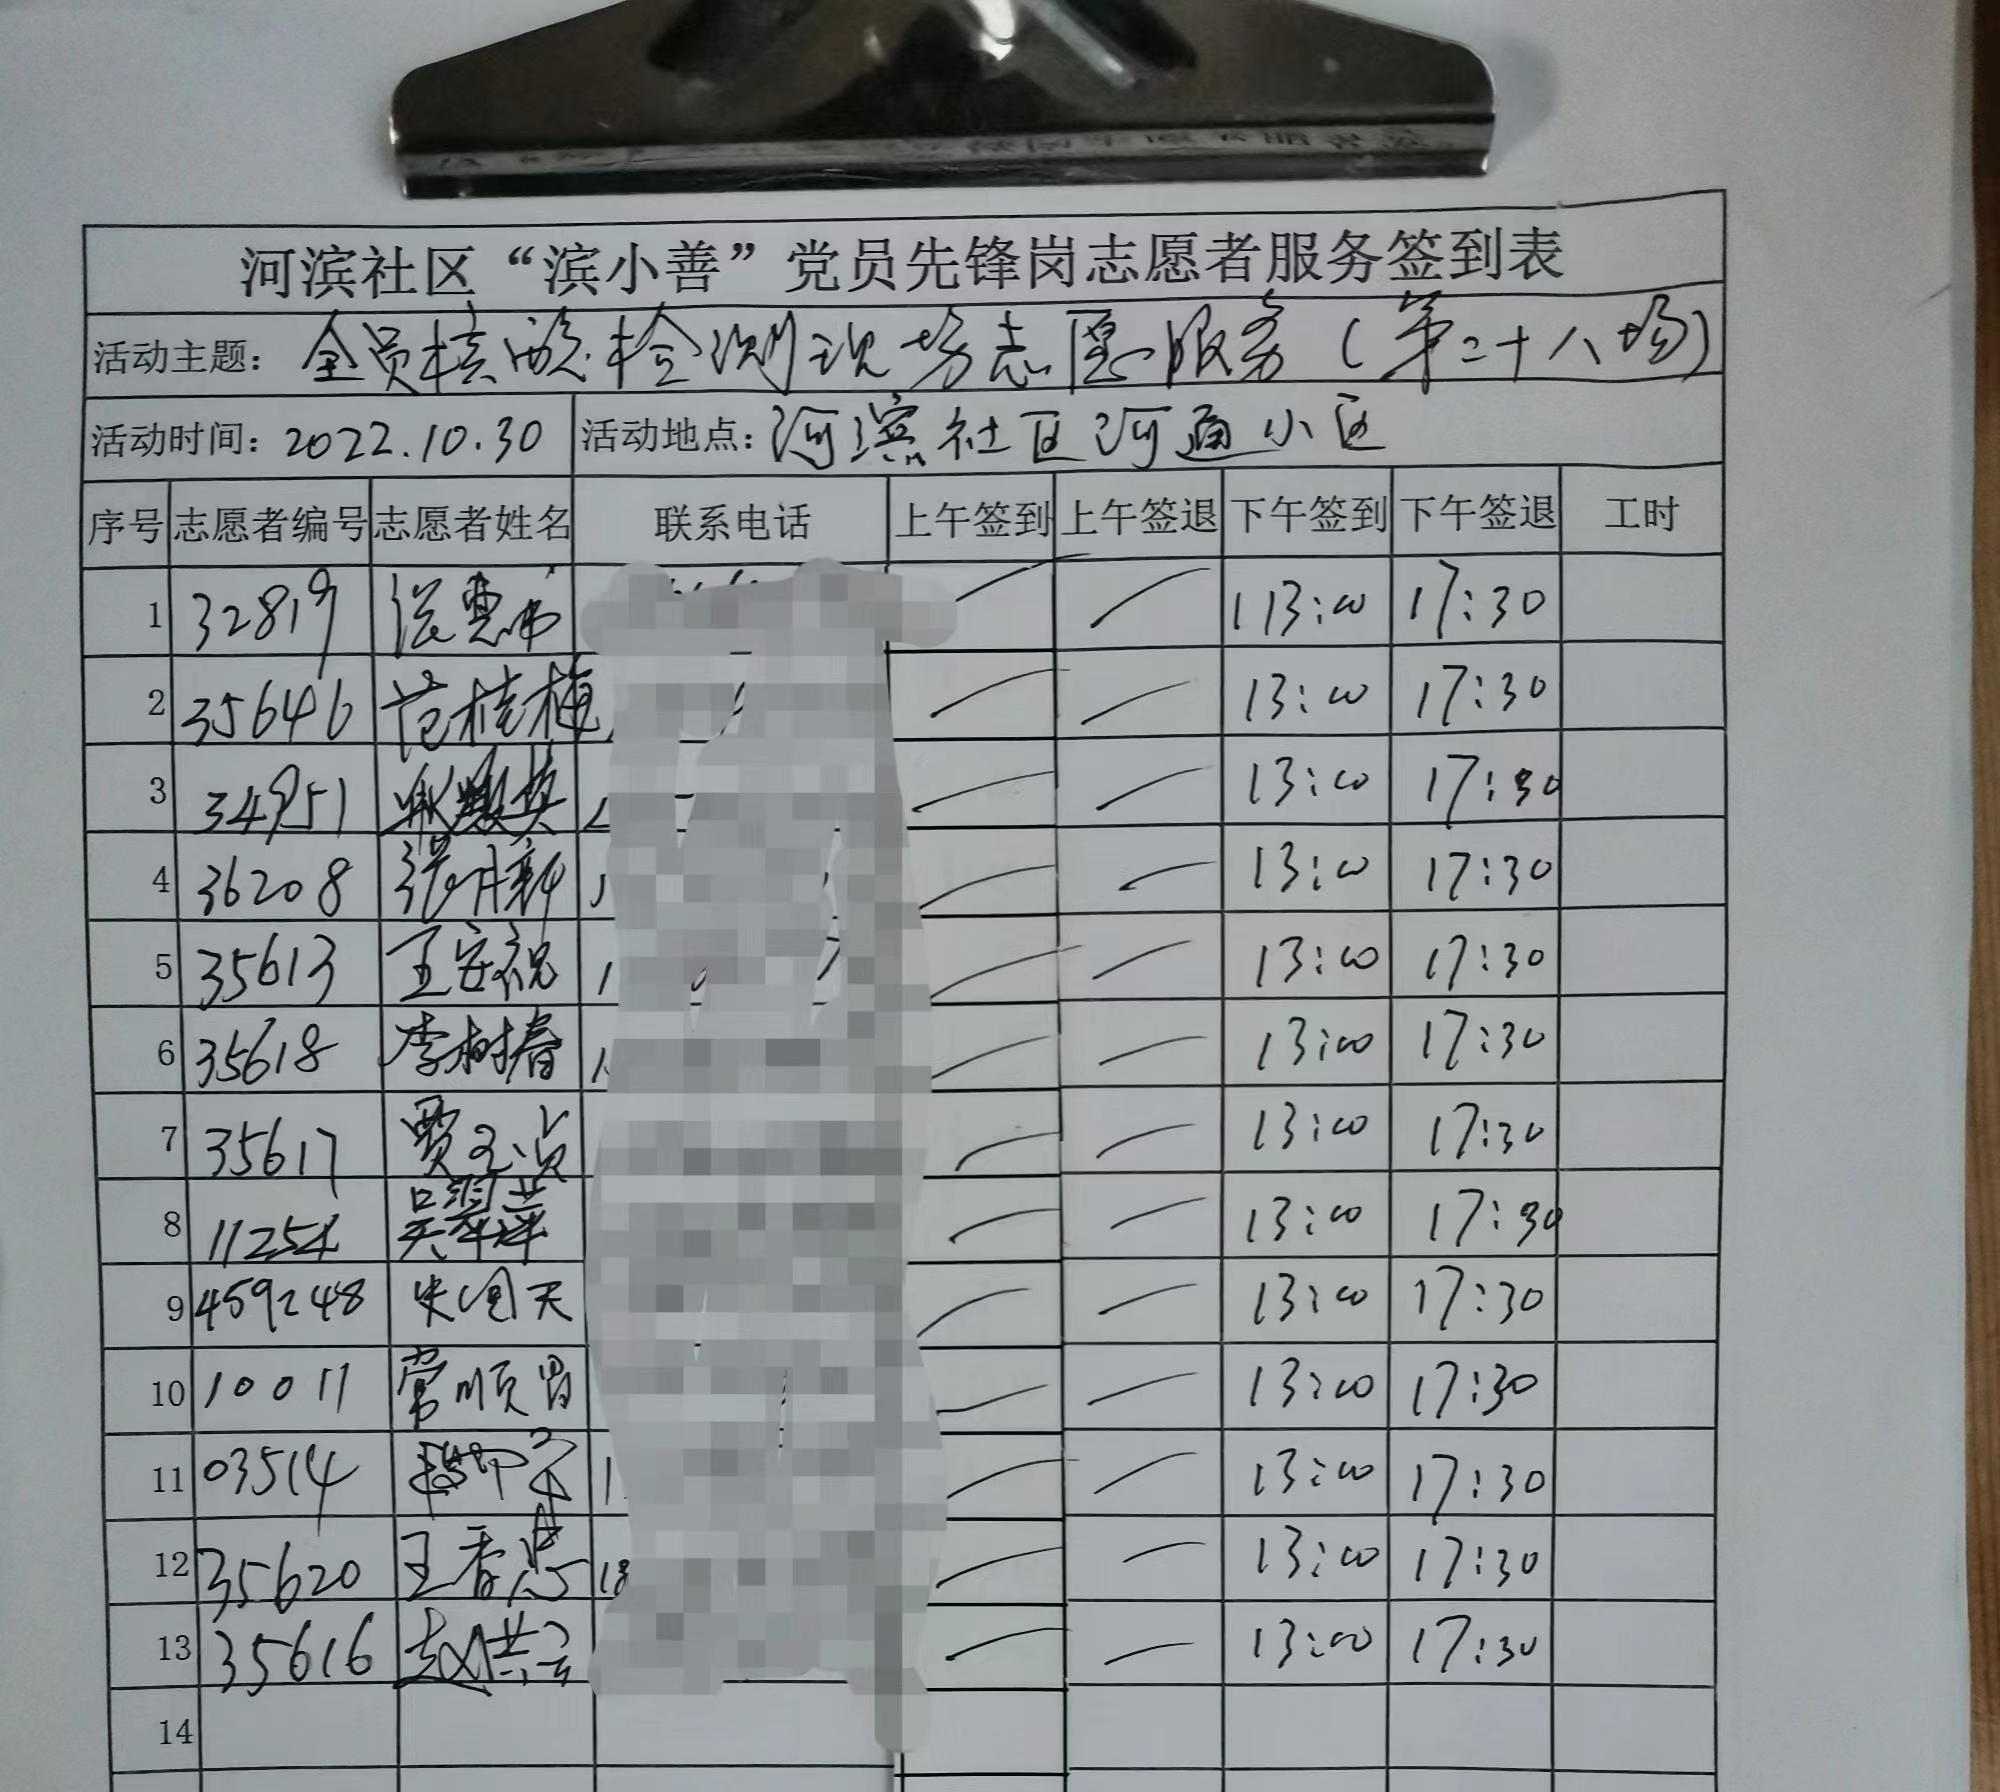 河滨社区“滨小善”党员先锋岗志愿者服务签到表
活动主题：全员核酸检测现场志愿服务（第二十八场）
活动时间：2022.10.30 活动地点：河滨社区河通小区
序号 志愿者编号 志愿者姓名 联系电话 上午签到 上午签退 下午签到 下午签退 工时
1 32819 113:00 17:30
2 35646 范桂梅 13:00 17:30
3 34951 13:00 17:30
4 36208 张月新 13:00 17:30
5 35613 王安祝 13:00 17:30
6 35618 李树春 13:00 17:30
7 35617 贾 13:00 17:30
8 11254 吴翠萍 13:00 17:30
9 459248 朱国天 13:00 17:30
10 10011 常顺 13:00 17:30
11 03514 13:00 17:30
12 35620 王香忠 18 13:00 17:30
13 35616 赵共云 13:00 17:30
14